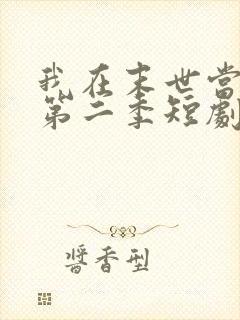 我在末世當
第二季短劇
醬香型